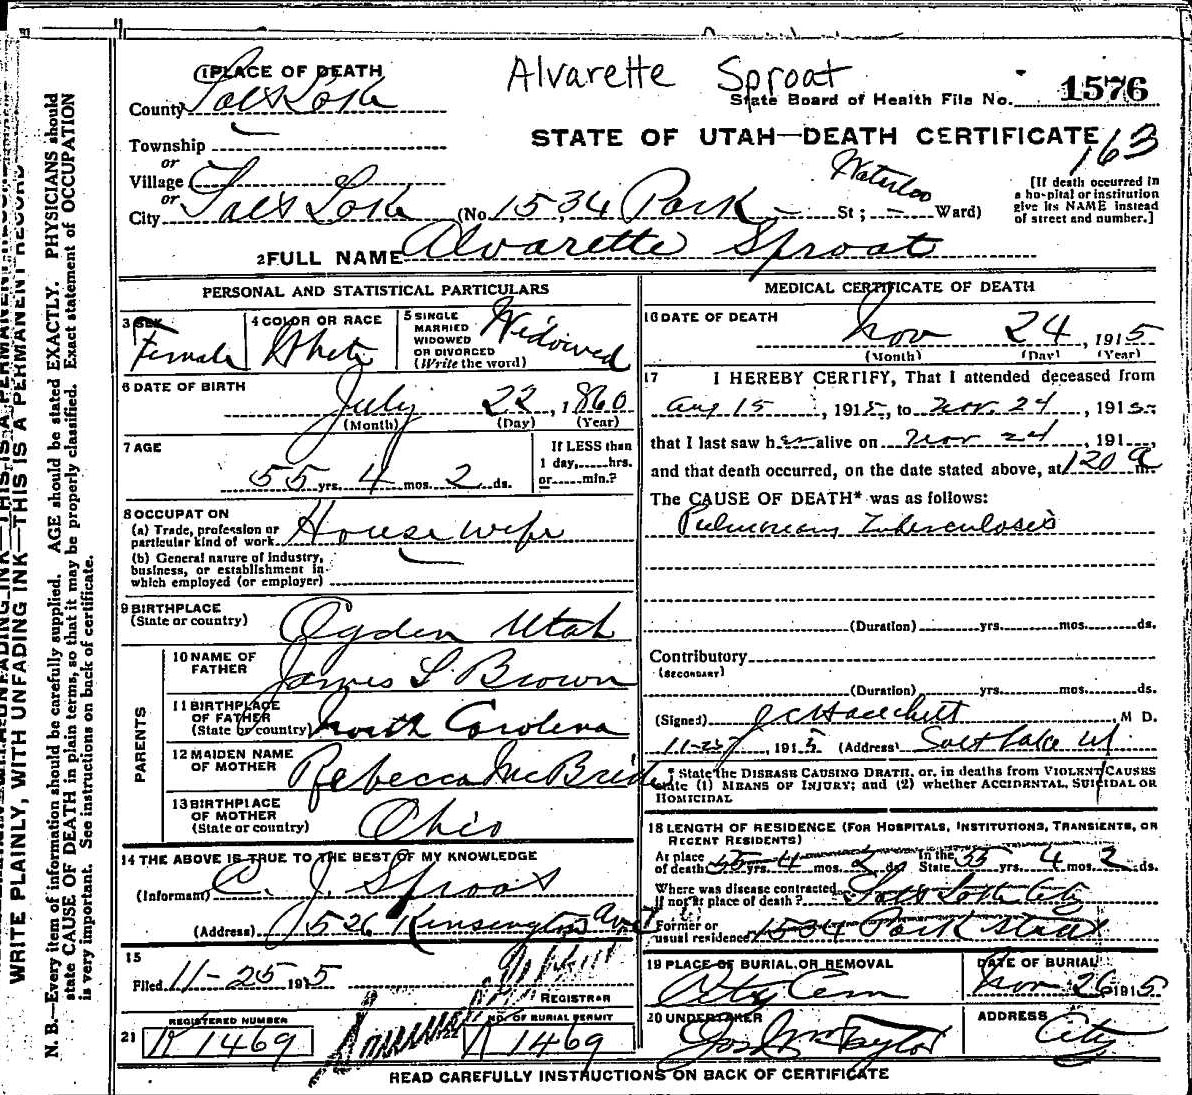 Alvarette Sproat
1 PLACE OF DEATH
County Salt Lake
State Board of Health File No. 1576
Township
STATE OF UTAH—DEATH CERTIFICATE
163
or
Village
or
City Salt Lake (No. 1534 Park - St; - Ward)
Waterloo
[If death occurred in
a hospital or institution
give its NAME instead
of street and number.]
2 FULL NAME Alvarette Sproat
PERSONAL AND STATISTICAL PARTICULARS
3 SEX
Female
4 COLOR OR RACE
White
5 SINGLE
MARRIED
WIDOWED
OR DIVORCED
(Write the word)
Widowed
6 DATE OF BIRTH
July 22, 1860
(Month) (Day) (Year)
7 AGE
55 yrs. 4 mos. 2 ds.
If LESS than
1 day,......hrs.
or......min.?
8 OCCUPATION
(a) Trade, profession or
particular kind of work House wife
(b) General nature of industry,
business, or establishment in
which employed (or employer)
9 BIRTHPLACE
(State or country) Ogden Utah
PARENTS
10 NAME OF
FATHER James S Brown
11 BIRTHPLACE
OF FATHER
(State or country) North Carolena
12 MAIDEN NAME
OF MOTHER Rebecca McBride
13 BIRTHPLACE
OF MOTHER
(State or country) Ohio
14 THE ABOVE IS TRUE TO THE BEST OF MY KNOWLEDGE
(Informant) C. J. Sproat
(Address) 526 Kensington Ave
15
Filed 11-25 1915
REGISTRAR
REGISTERED NUMBER
NO. OF BURIAL PERMIT
21 K 1469
22 K 1469
MEDICAL CERTIFICATE OF DEATH
16 DATE OF DEATH
Nov 24, 1915
(Month) (Day) (Year)
17 I HEREBY CERTIFY, That I attended deceased from
Aug 15, 1915, to Nov. 24, 1915
that I last saw her alive on Nov 24, 191
and that death occurred, on the date stated above, at 120 a m.
The CAUSE OF DEATH* was as follows:
Pulmonary Tuberculosis
(Duration) yrs. mos. ds.
Contributory
(SECONDARY)
(Duration) yrs. mos. ds.
(Signed) M D.
11-25, 1915 (Address) Salt Lake Ut
* State the DISEASE CAUSING DEATH, or, in deaths from VIOLENT CAUSES
state (1) MEANS OF INJURY; and (2) whether ACCIDENTAL, SUICIDAL OR
HOMICIDAL
18 LENGTH OF RESIDENCE (FOR HOSPITALS, INSTITUTIONS, TRANSIENTS, OR
RECENT RESIDENTS)
At place
of death 55 yrs. 4 mos. 2 ds. In the
State 55 yrs. 4 mos. 2 ds.
Where was disease contracted
If not at place of death? Salt Lake City
Former or
usual residence 1534 Park Street
19 PLACE OF BURIAL OR REMOVAL
City Cem
DATE OF BURIAL
Nov 26 1915
20 UNDERTAKER
Jos Wm Taylor
ADDRESS
City
READ CAREFULLY INSTRUCTIONS ON BACK OF CERTIFICATE
WRITE PLAINLY, WITH UNFADING INK—THIS IS A PERMANENT RECORD
N. B.—Every item of information should be carefully supplied. AGE should be stated EXACTLY. PHYSICIANS should
state CAUSE OF DEATH in plain terms, so that it may be properly classified. Exact statement of OCCUPATION
is very important. See instructions on back of certificate.